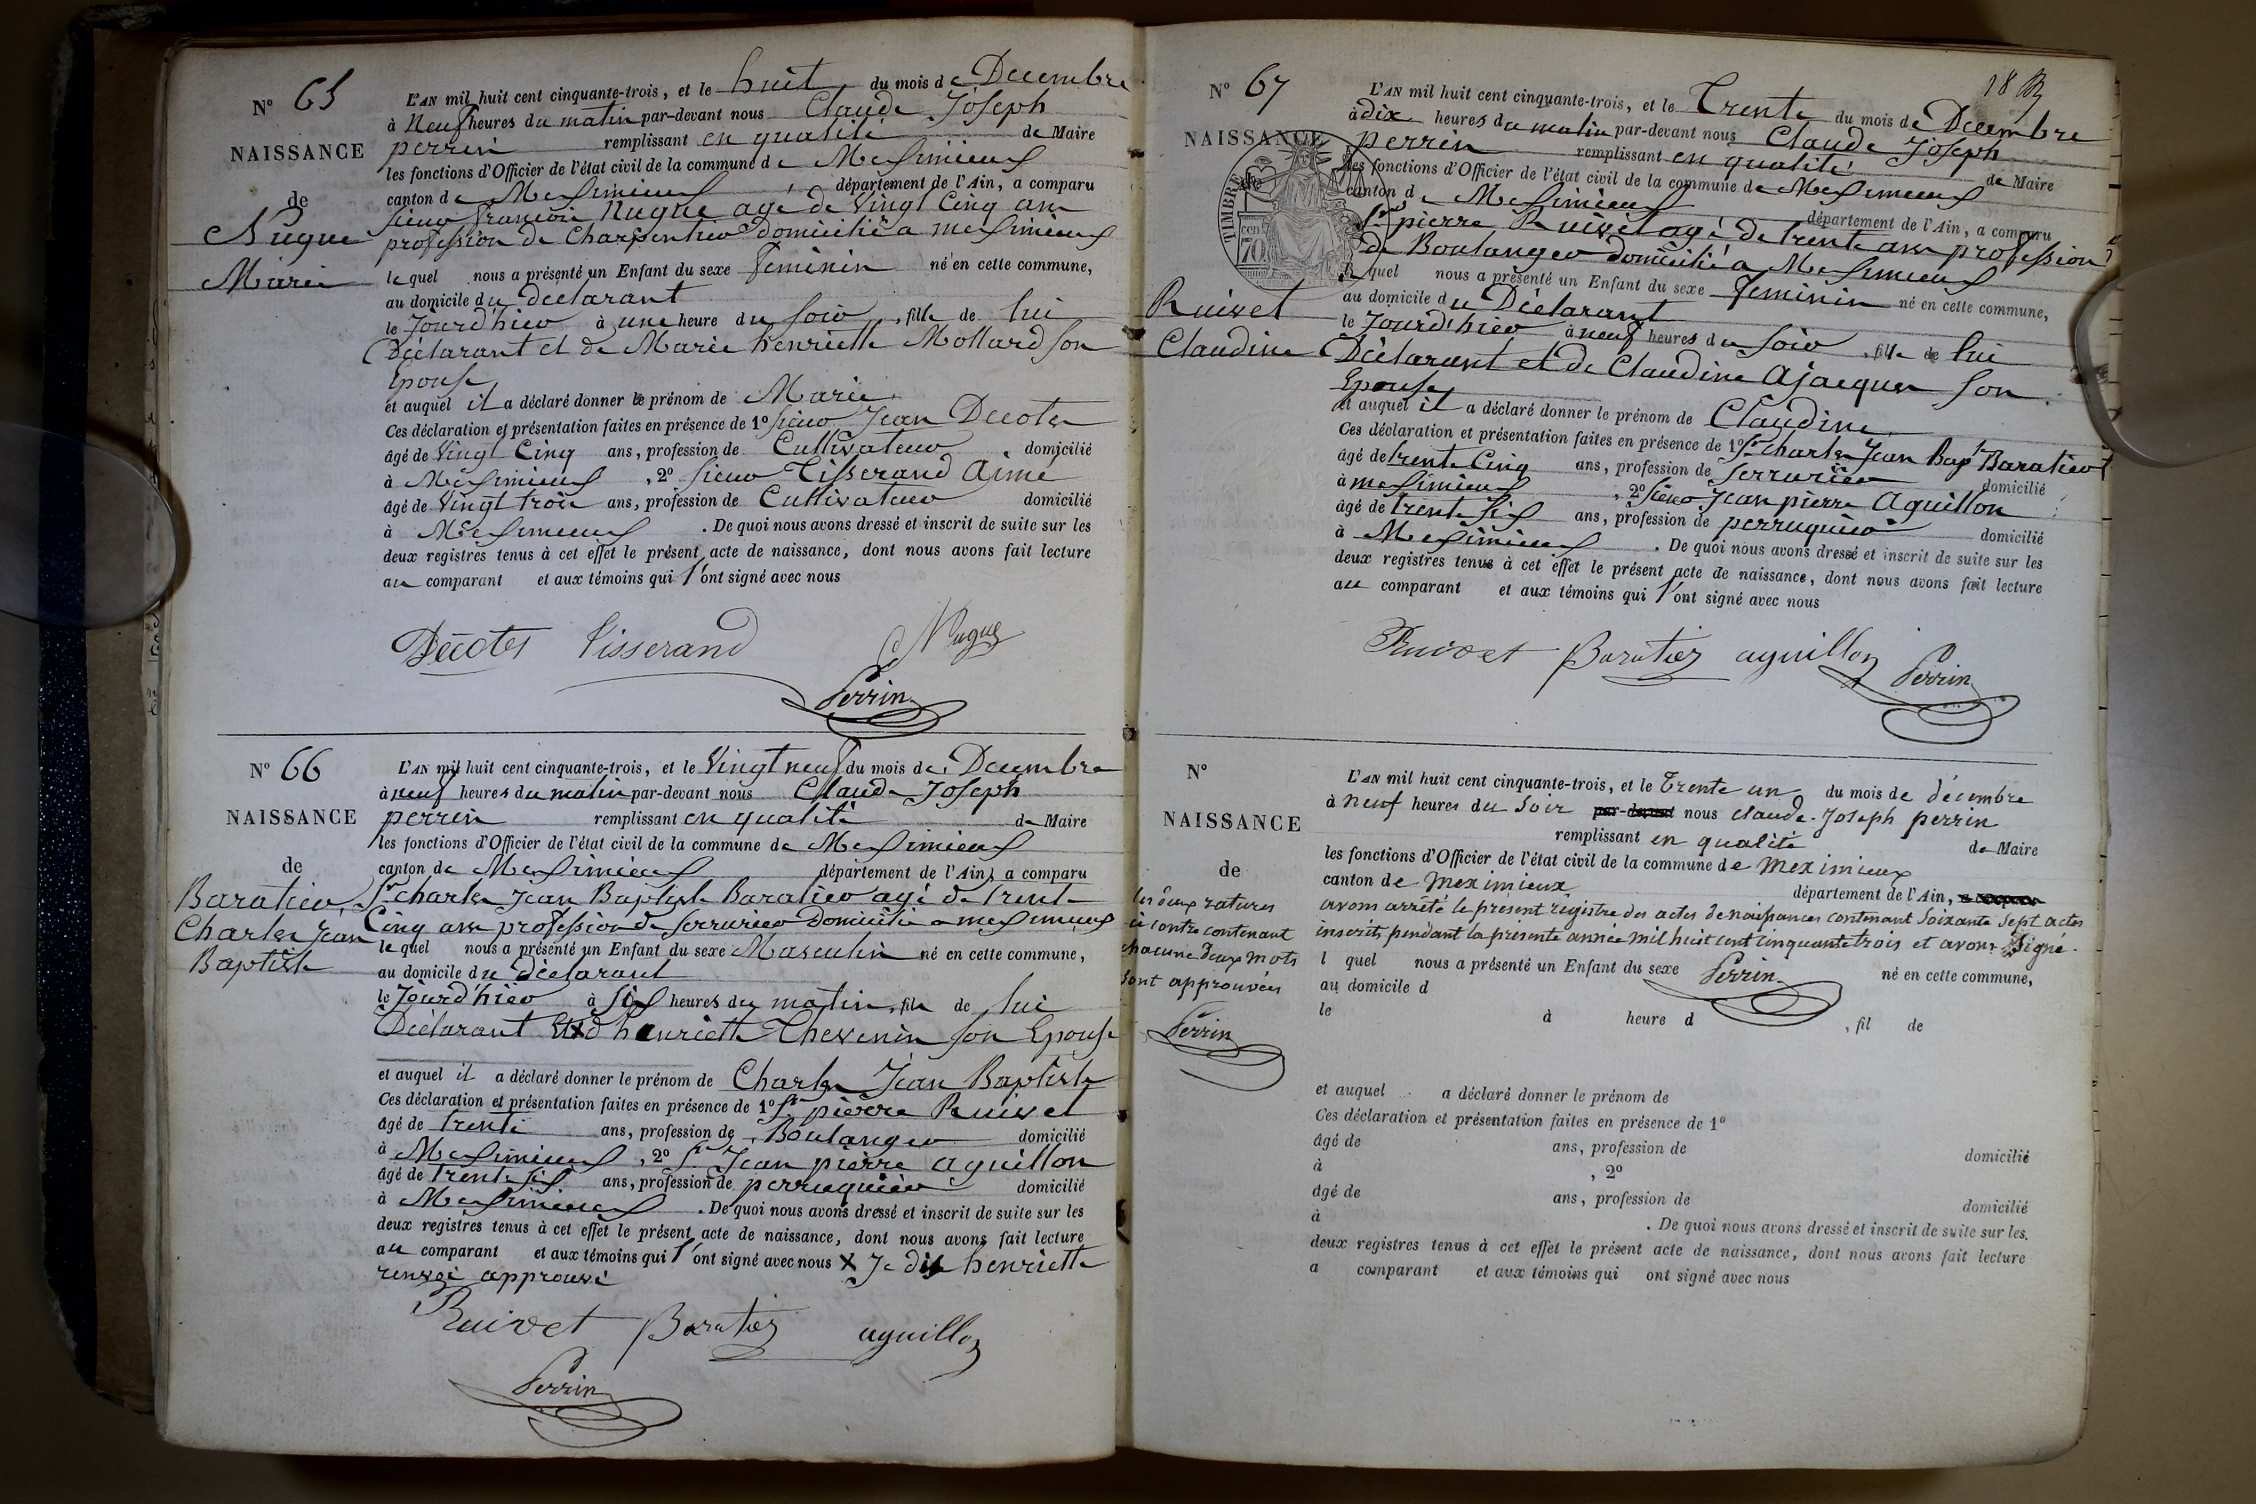 N° 65
NAISSANCE
de
Nugue
Marie
L'AN mil huit cent cinquante-trois, et le huit du mois de Decembre
à Neuf heures du matin par-devant nous Claude Joseph
perrin remplissant en qualité de Maire
les fonctions d'Officier de l'état civil de la commune de Meximieux
canton de Meximieux, département de l'Ain, a comparu
sieur françois Nugue agé de Vingt Cinq ans
profession de Charpentier domicilié a meximieux
lequel nous a présenté un Enfant du sexe feminin né en cette commune,
au domicile du déclarant
le Jourd'hier à une heure du soir, fille de lui
Déclarant et de Marie henriette Mollard son
Epouse
et auquel il a déclaré donner le prénom de Marie
Ces déclaration et présentation faites en présence de 1° sieur Jean Decotes
âgé de Vingt Cinq ans, profession de Cultivateur domicilié
à Meximieux, 2° sieur Tisserand Aimé
âgé de Vingt trois ans, profession de Cultivateur domicilié
à Meximieux. De quoi nous avons dressé et inscrit de suite sur les
deux registres tenus à cet effet le présent acte de naissance, dont nous avons fait lecture
au comparant et aux témoins qui l'ont signé avec nous
Décotes Tisserand Nugue
Perrin
N° 66
NAISSANCE
de
Baratier
Charles Jean
Baptiste
L'AN mil huit cent cinquante-trois, et le Vingt neuf du mois de Decembre
à neuf heures du matin par-devant nous Claude Joseph
perrin remplissant en qualité de Maire
les fonctions d'Officier de l'état civil de la commune de Meximieux
canton de Meximieux département de l'Ain, a comparu
Sr Charles Jean Baptiste Baratier agé de trente
Cinq ans profession de Serrurier Domicilié a meximieux
lequel nous a présenté un Enfant du sexe Masculin né en cette commune,
au domicile du déclarant
le Jourd'hier à six heures du matin, fils de lui
Déclarant et X d henriette Thevenin son Epouse
et auquel il a déclaré donner le prénom de Charles Jean Baptiste
Ces déclaration et présentation faites en présence de 1° Sr pierre Ruivet
âgé de trente ans, profession de Boulanger domicilié
à Meximieux, 2° Sr Jean pierre aguillon
âgé de trente six ans, profession de perruquier domicilié
à Meximieux. De quoi nous avons dressé et inscrit de suite sur les
deux registres tenus à cet effet le présent acte de naissance, dont nous avons fait lecture
au comparant et aux témoins qui l'ont signé avec nous X Je dis henriette
renvoi approuvé
Ruivet Baratier aguillon
Perrin
18
N° 67
NAISSANCE
de
TIMBRE
cent
70
Ruivet
Claudine
L'AN mil huit cent cinquante-trois, et le Trente du mois de Decembre
à dix heures du matin par-devant nous Claude Joseph
perrin remplissant en qualité de Maire
les fonctions d'Officier de l'état civil de la commune de Meximieux
canton de Meximieux département de l'Ain, a comparu
Sr pierre Ruivet agé de trente ans profession
de Boulanger domicilié a Meximieux
lequel nous a présenté un Enfant du sexe feminin né en cette commune,
au domicile du Déclarant
le Jourd'hier à neuf heures du soir, fille de lui
Déclarant et de Claudine Ajacques son
Epouse
et auquel il a déclaré donner le prénom de Claudine
Ces déclaration et présentation faites en présence de 1° Sr Charles Jean Bapt Baratier
âgé de trente Cinq ans, profession de Serrurier domicilié
à meximieux, 2° sieur Jean pierre Aguillon
âgé de trente six ans, profession de perruquier domicilié
à Meximieux. De quoi nous avons dressé et inscrit de suite sur les
deux registres tenus à cet effet le présent acte de naissance, dont nous avons fait lecture
au comparant et aux témoins qui l'ont signé avec nous
Ruivet Baratier aguillon Perrin
N°
NAISSANCE
de
les deux ratures
ci contre contenant
chacune deux mots
sont approuvées
Perrin
L'AN mil huit cent cinquante-trois, et le trente un du mois de décembre
à neuf heures du soir par-devant nous claude-Joseph perrin
remplissant en qualité de Maire
les fonctions d'Officier de l'état civil de la commune de meximieux
canton de meximieux département de l'Ain, a comparu
avons arrêté le présent registre des actes de naissances contenant soixante sept actes
inscrits pendant la présente année mil huit cent cinquante trois et avons signé.
l quel nous a présenté un Enfant du sexe Perrin né en cette commune,
au domicile d
le à heure d, fil de
et auquel a déclaré donner le prénom de
Ces déclaration et présentation faites en présence de 1°
âgé de ans, profession de domicilié
à, 2°
âgé de ans, profession de domicilié
à. De quoi nous avons dressé et inscrit de suite sur les
deux registres tenus à cet effet le présent acte de naissance, dont nous avons fait lecture
a comparant et aux témoins qui ont signé avec nous